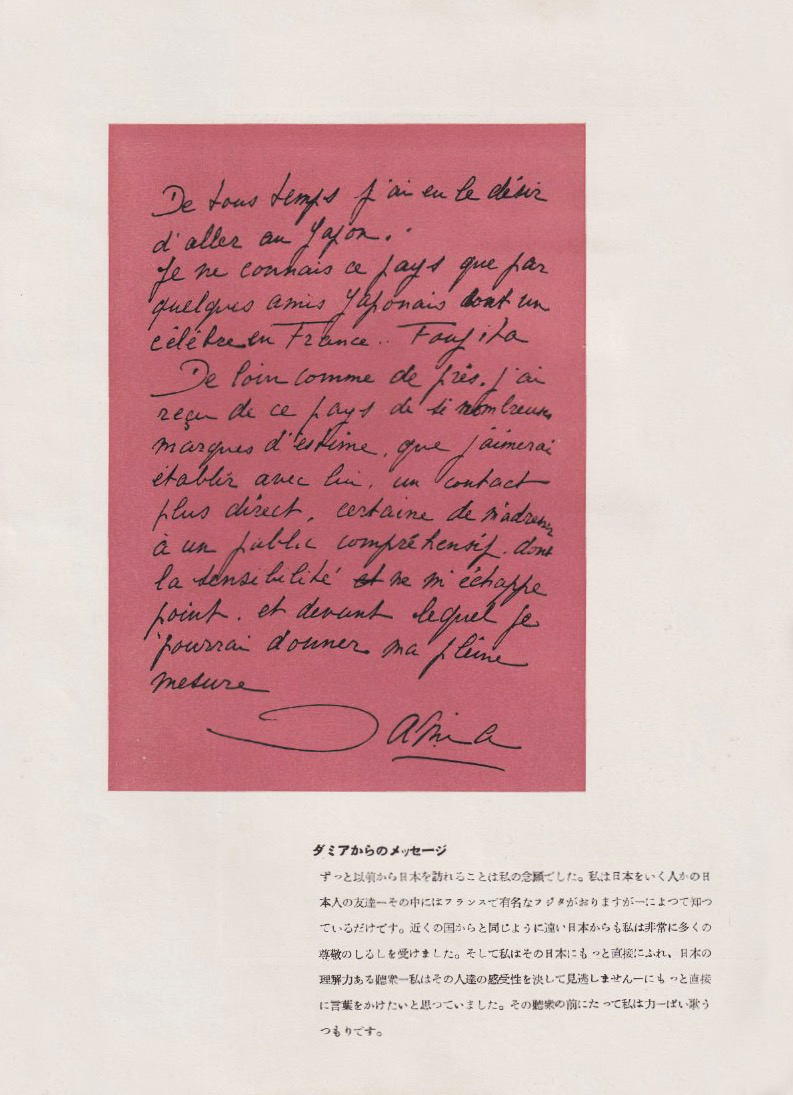 De tous temps j'ai eu le désir
d'aller au Japon..
Je ne connais ce pays que par
quelques amis Japonais dont un
célèbre en France.. Foujita
De loin comme de près, j'ai
reçu de ce pays de si nombreuses
marques d'estime, que j'aimerai
établir avec lui, un contact
plus direct, certaine de m'adresser
à un public compréhensif, dont
la sensibilité et ne m'échappe
point, et devant lequel je
pourrai donner ma pleine
mesure
Damia
ダミアからのメッセージ
ずっと以前から日本を訪れることは私の念願でした。私は日本をいく人かの日
本人の友達—その中にはフランスで有名なフジタがおりますが—によつて知つ
ているだけです。近くの国からと同じように遠い日本からも私は非常に多くの
尊敬のしるしを受けました。そして私はその日本にもっと直接にふれ、日本の
理解力ある聴衆—私はその人達の感受性を決して見逃しません—にもっと直接
に言葉をかけたいと思つていました。その聴衆の前にたって私は力一ぱい歌う
つもりです。